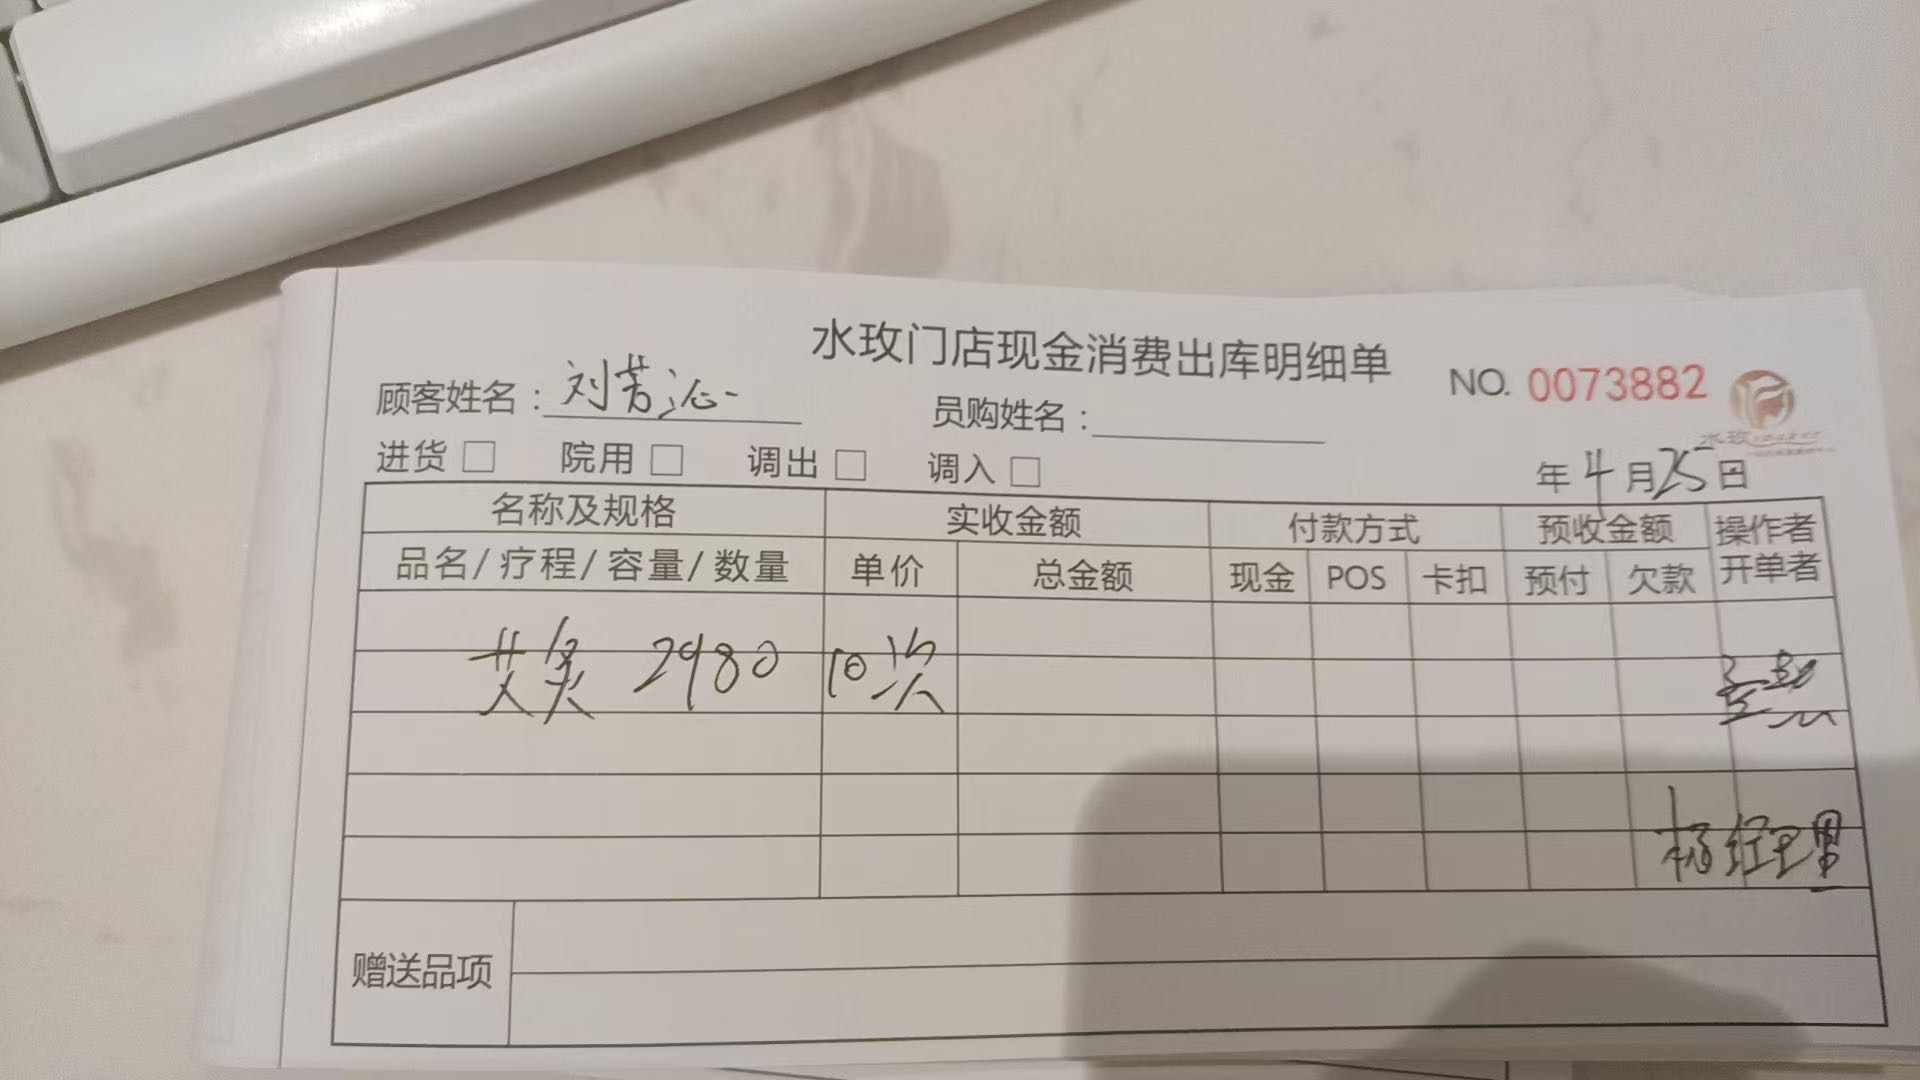 水玫门店现金消费出库明细单
NO. 0073882
顾客姓名：刘芳沁
员购姓名：
水玫
进货 □ 院用 □ 调出 □ 调入 □
年4月25日
名称及规格 实收金额 付款方式 预收金额 操作者
品名/疗程/容量/数量 单价 总金额 现金 POS 卡扣 预付 欠款 开单者
艾灸 2980 10次
杨经理
赠送品项